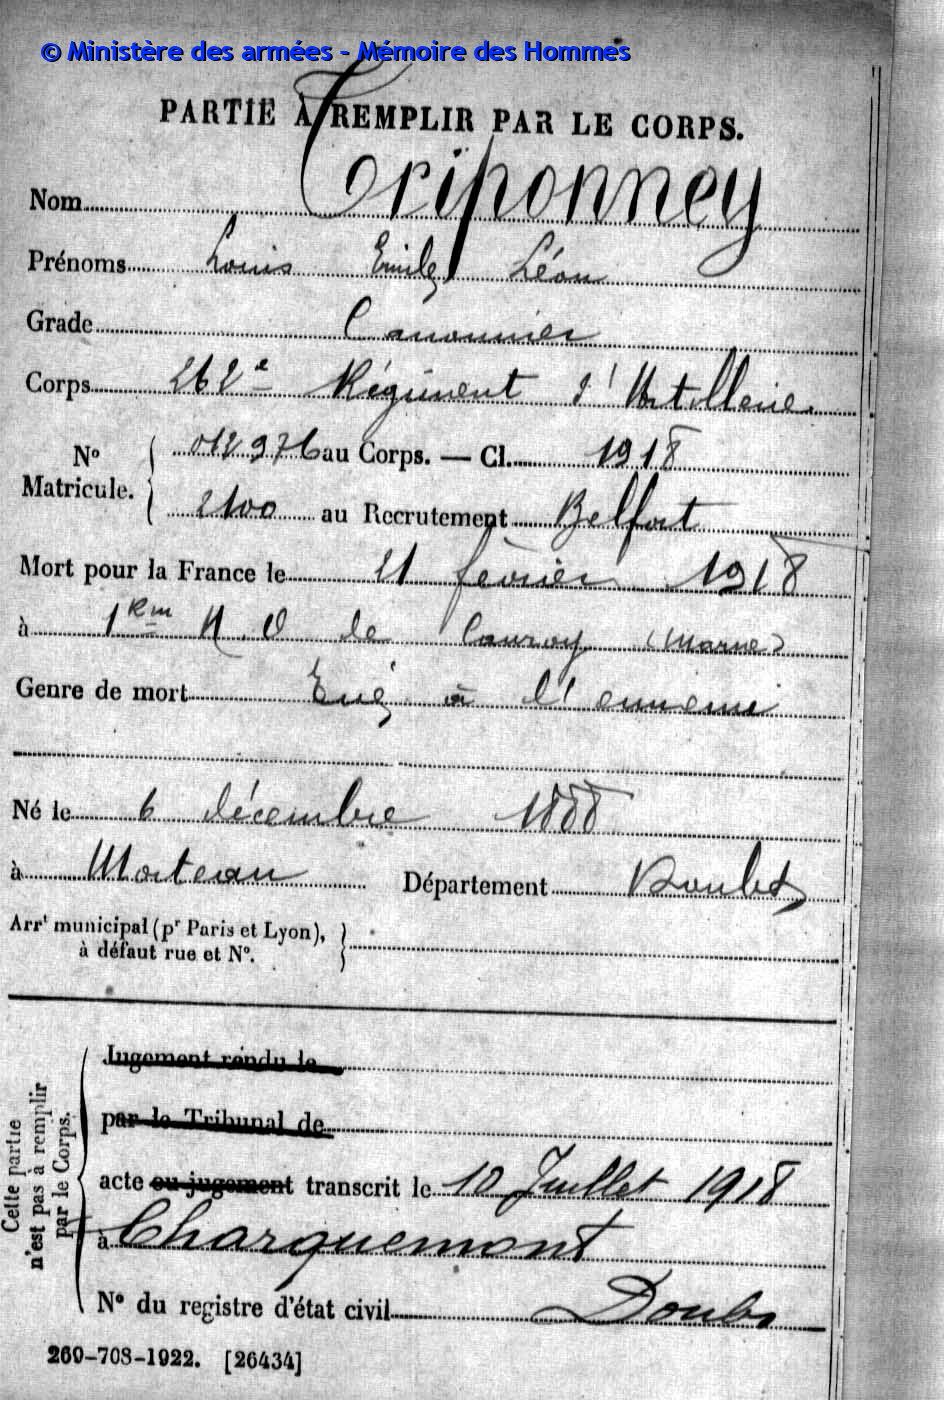 © Ministère des armées - Mémoire des Hommes
PARTIE À REMPLIR PAR LE CORPS.
Nom Triponney
Prénoms Louis Emile Léon
Grade Canonnier
Corps 262e Régiment d'Artillerie.
No Matricule. 012976 au Corps. — Cl. 1918
2100 au Recrutement Belfort
Mort pour la France le 21 février 1918
à 1 Km N.O de Cauroy (Marne)
Genre de mort Tué à l'ennemi
Né le 6 décembre 1888
à Morteau Département Doubs
Arrt municipal (pr Paris et Lyon),
à défaut rue et No.
Cette partie
n'est pas à remplir
par le Corps.
Jugement rendu le
par le Tribunal de
acte ou jugement transcrit le 10 Juillet 1918
à Charquemont
No du registre d'état civil Doubs
260-708-1922. [26434]